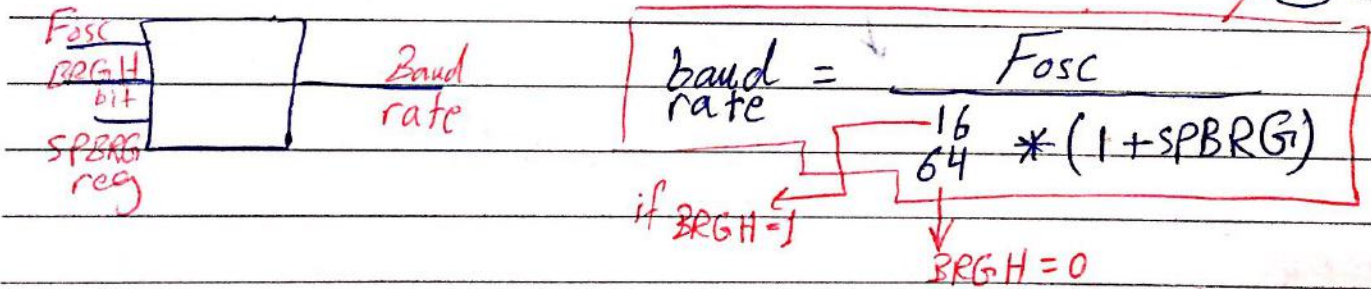 Fosc
BRGH
bit
SPBRG
reg
Baud
rate
baud rate = Fosc
16
64 * (1 + SPBRG)
if BRGH = 1
BRGH = 0